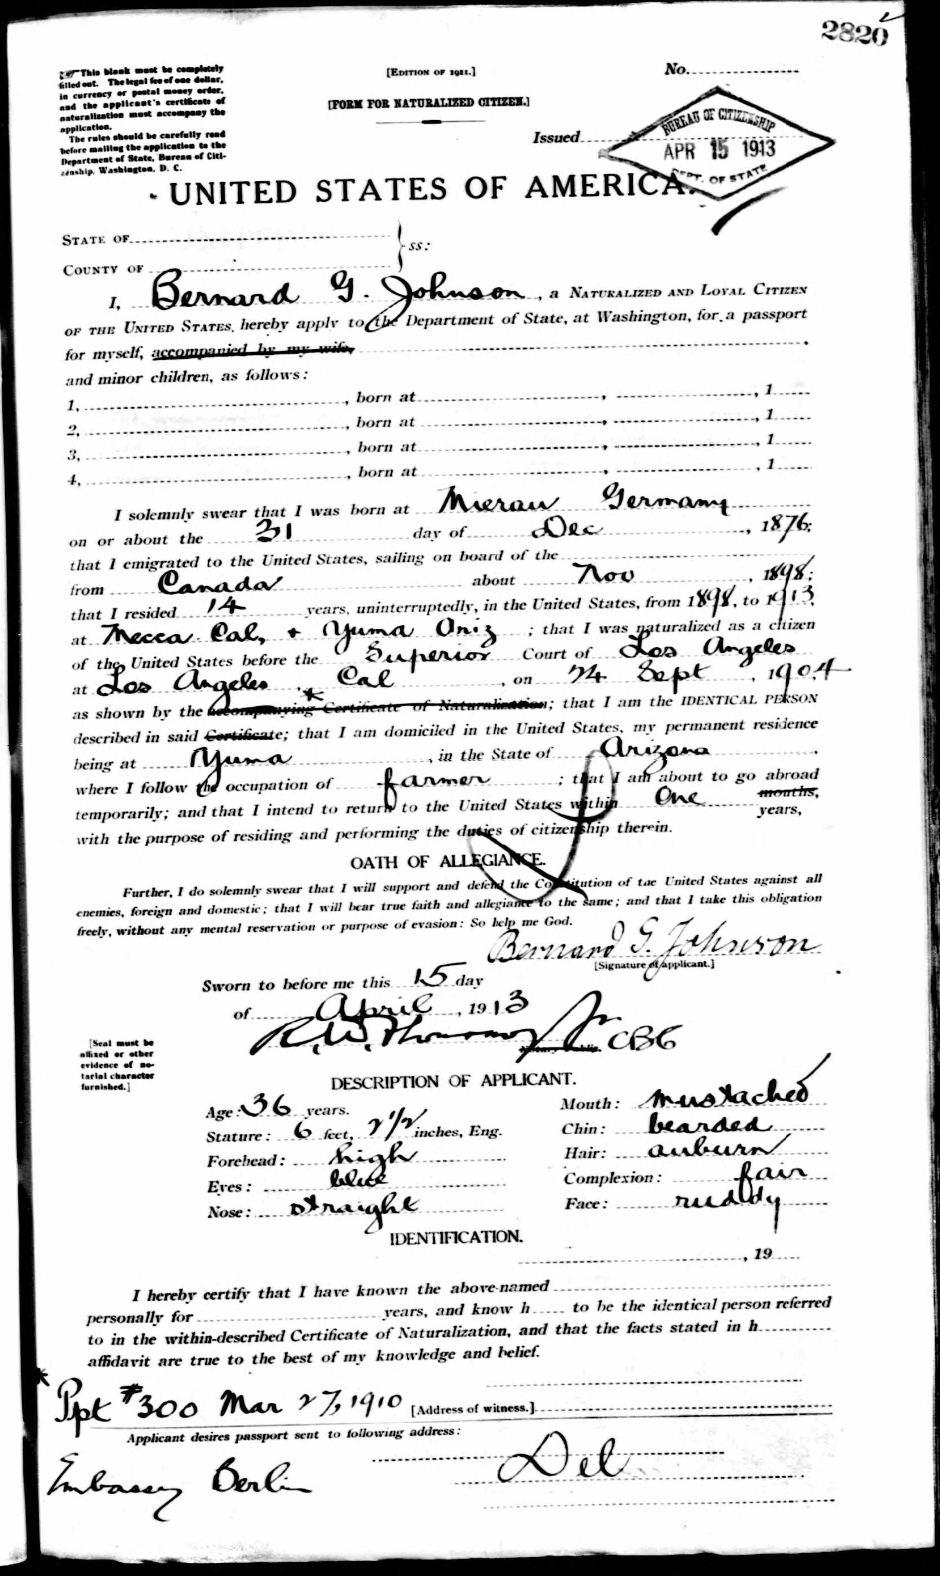 2820
☞ This blank must be completely
filled out. The legal fee of one dollar,
in currency or postal money order,
and the applicant's certificate of
naturalization must accompany the
application.
The rules should be carefully read
before mailing the application to the
Department of State, Bureau of Citi-
zenship, Washington, D. C.
[EDITION OF 1911.]
[FORM FOR NATURALIZED CITIZEN.]
No.
Issued
BUREAU OF CITIZENSHIP
APR 15 1913
DEPT. OF STATE
UNITED STATES OF AMERICA.
STATE OF
COUNTY OF
ss:
I, Bernard G. Johnson, a NATURALIZED AND LOYAL CITIZEN
OF THE UNITED STATES, hereby apply to the Department of State, at Washington, for a passport
for myself, accompanied by my wife,
and minor children, as follows:
1, , born at , , 1
2, , born at , , 1
3, , born at , , 1
4, , born at , , 1
I solemnly swear that I was born at Mierau Germany
on or about the 31 day of Dec, 1876;
that I emigrated to the United States, sailing on board of the
from Canada about Nov, 1898;
that I resided 14 years, uninterruptedly, in the United States, from 1898, to 1913,
at Mecca Cal, + Yuma Ariz; that I was naturalized as a citizen
of the United States before the Superior Court of Los Angeles
at Los Angeles, Cal, on 24 Sept, 1904
as shown by the * accompanying Certificate of Naturalization; that I am the IDENTICAL PERSON
described in said Certificate; that I am domiciled in the United States, my permanent residence
being at Yuma, in the State of Arizona,
where I follow the occupation of farmer; that I am about to go abroad
temporarily; and that I intend to return to the United States within One months, years,
with the purpose of residing and performing the duties of citizenship therein.
OATH OF ALLEGIANCE.
Further, I do solemnly swear that I will support and defend the Constitution of the United States against all
enemies, foreign and domestic; that I will bear true faith and allegiance to the same; and that I take this obligation
freely, without any mental reservation or purpose of evasion: So help me God.
Bernard G. Johnson
[Signature of applicant.]
Sworn to before me this 15 day
of April, 1913
R. W. Jr. CBC
Notary Public.
[Seal must be
affixed or other
evidence of no-
tarial character
furnished.]
DESCRIPTION OF APPLICANT.
Age: 36 years.
Stature: 6 feet, 2 1/2 inches, Eng.
Forehead: high
Eyes: blue
Nose: straight
Mouth: mustached
Chin: bearded
Hair: auburn
Complexion: fair
Face: ruddy
IDENTIFICATION.
, 19
I hereby certify that I have known the above-named
personally for years, and know h to be the identical person referred
to in the within-described Certificate of Naturalization, and that the facts stated in h
affidavit are true to the best of my knowledge and belief.
* Ppt #300 Mar 27, 1910
[Address of witness.]
Applicant desires passport sent to following address:
Embassy Berlin
Del